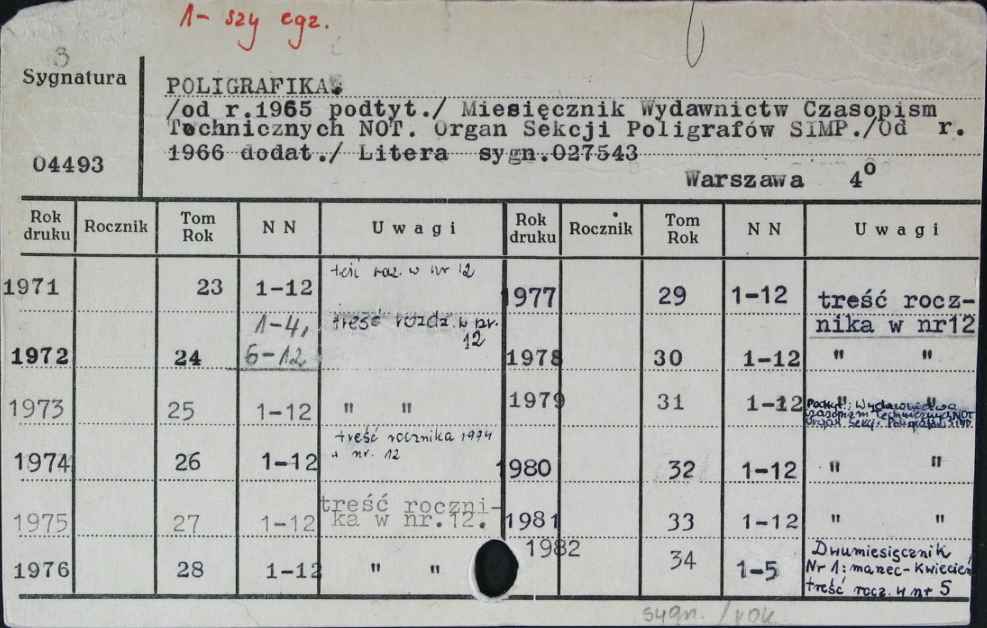 1- szy egz.
Sygnatura
04493
POLIGRAFIKA.
/od r.1965 podtyt./ Miesięcznik Wydawnictw Czasopism
Technicznych NOT. Organ Sekcji Poligrafów SIMP./Od r.
1966 dodat./ Litera sygn.027543
Warszawa 4º
Rok druku Rocznik Tom Rok N N Uwagi Rok druku Rocznik Tom Rok N N Uwagi
1971 23 1-12 treść rocz. w nr 12
1972 24 1-4, 6-12 treść rozdz. w nr. 12
1973 25 1-12 " "
1974 26 1-12 treść rocznika 1974 w nr. 12
1975 27 1-12 treść roczni-
ka w nr.12.
1976 28 1-12 " "
1977 29 1-12 treść rocz-
nika w nr12
1978 30 1-12 " "
1979 31 1-12 " "
Podtyt.: Wydawnictwa
Czasopism Technicznych NOT
Organ Sekcji Poligrafów SIMP.
1980 32 1-12 " "
1981 33 1-12 " "
1982 34 1-5 Dwumiesięcznik
Nr 1: marzec-Kwiecień
treść rocz. w nr 5
sygn. / rok